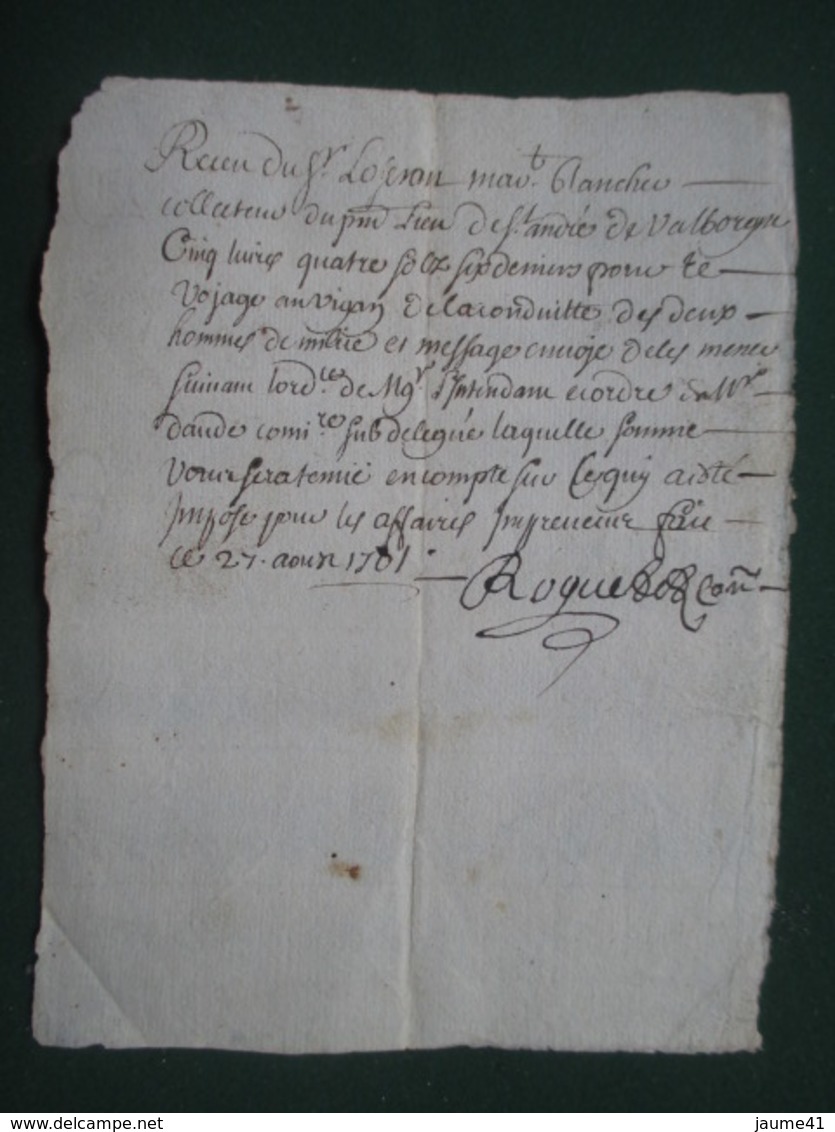 Receu du Sr. Loseran mart. blancher
collecteur du pnt Lieu de St. andré de Valborgne
Cinq livres quatre sols six deniers pour le
Voyage au vigan de la conduitte des deux
hommes de milice et message envoje de les mener
suivant lordce de Mgr. l'Intendant et ordre de Mr
daude comire subdelegué laquelle somme
vous sera tenüe en compte sur ce quy a esté
Imposé pour les affaires Impreveues fait
ce 27. aoust 1701.
Roque
delcampe.net
jaume41